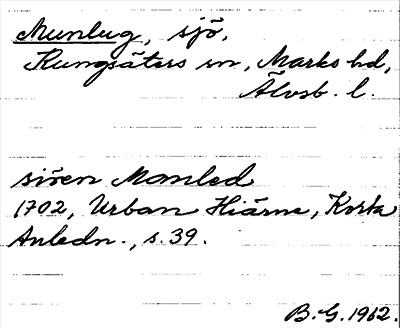 Munlug, sjö,
Kungsäters sn, Marks hd,
Älvsb. l.
siöen Manled
1702, Urban Hiärne, Korta
Anledn., s. 39.
B. G. 1962.